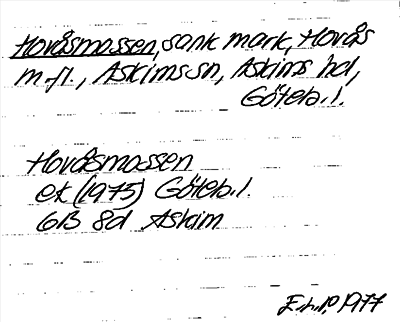 Hovåsmossen, sank mark, Hovås
m.fl., Askims sn, Askims hd,
Göteb.l.
Hovåsmossen
ek (1975) Göteb.l.
6B 8d Askim
1977